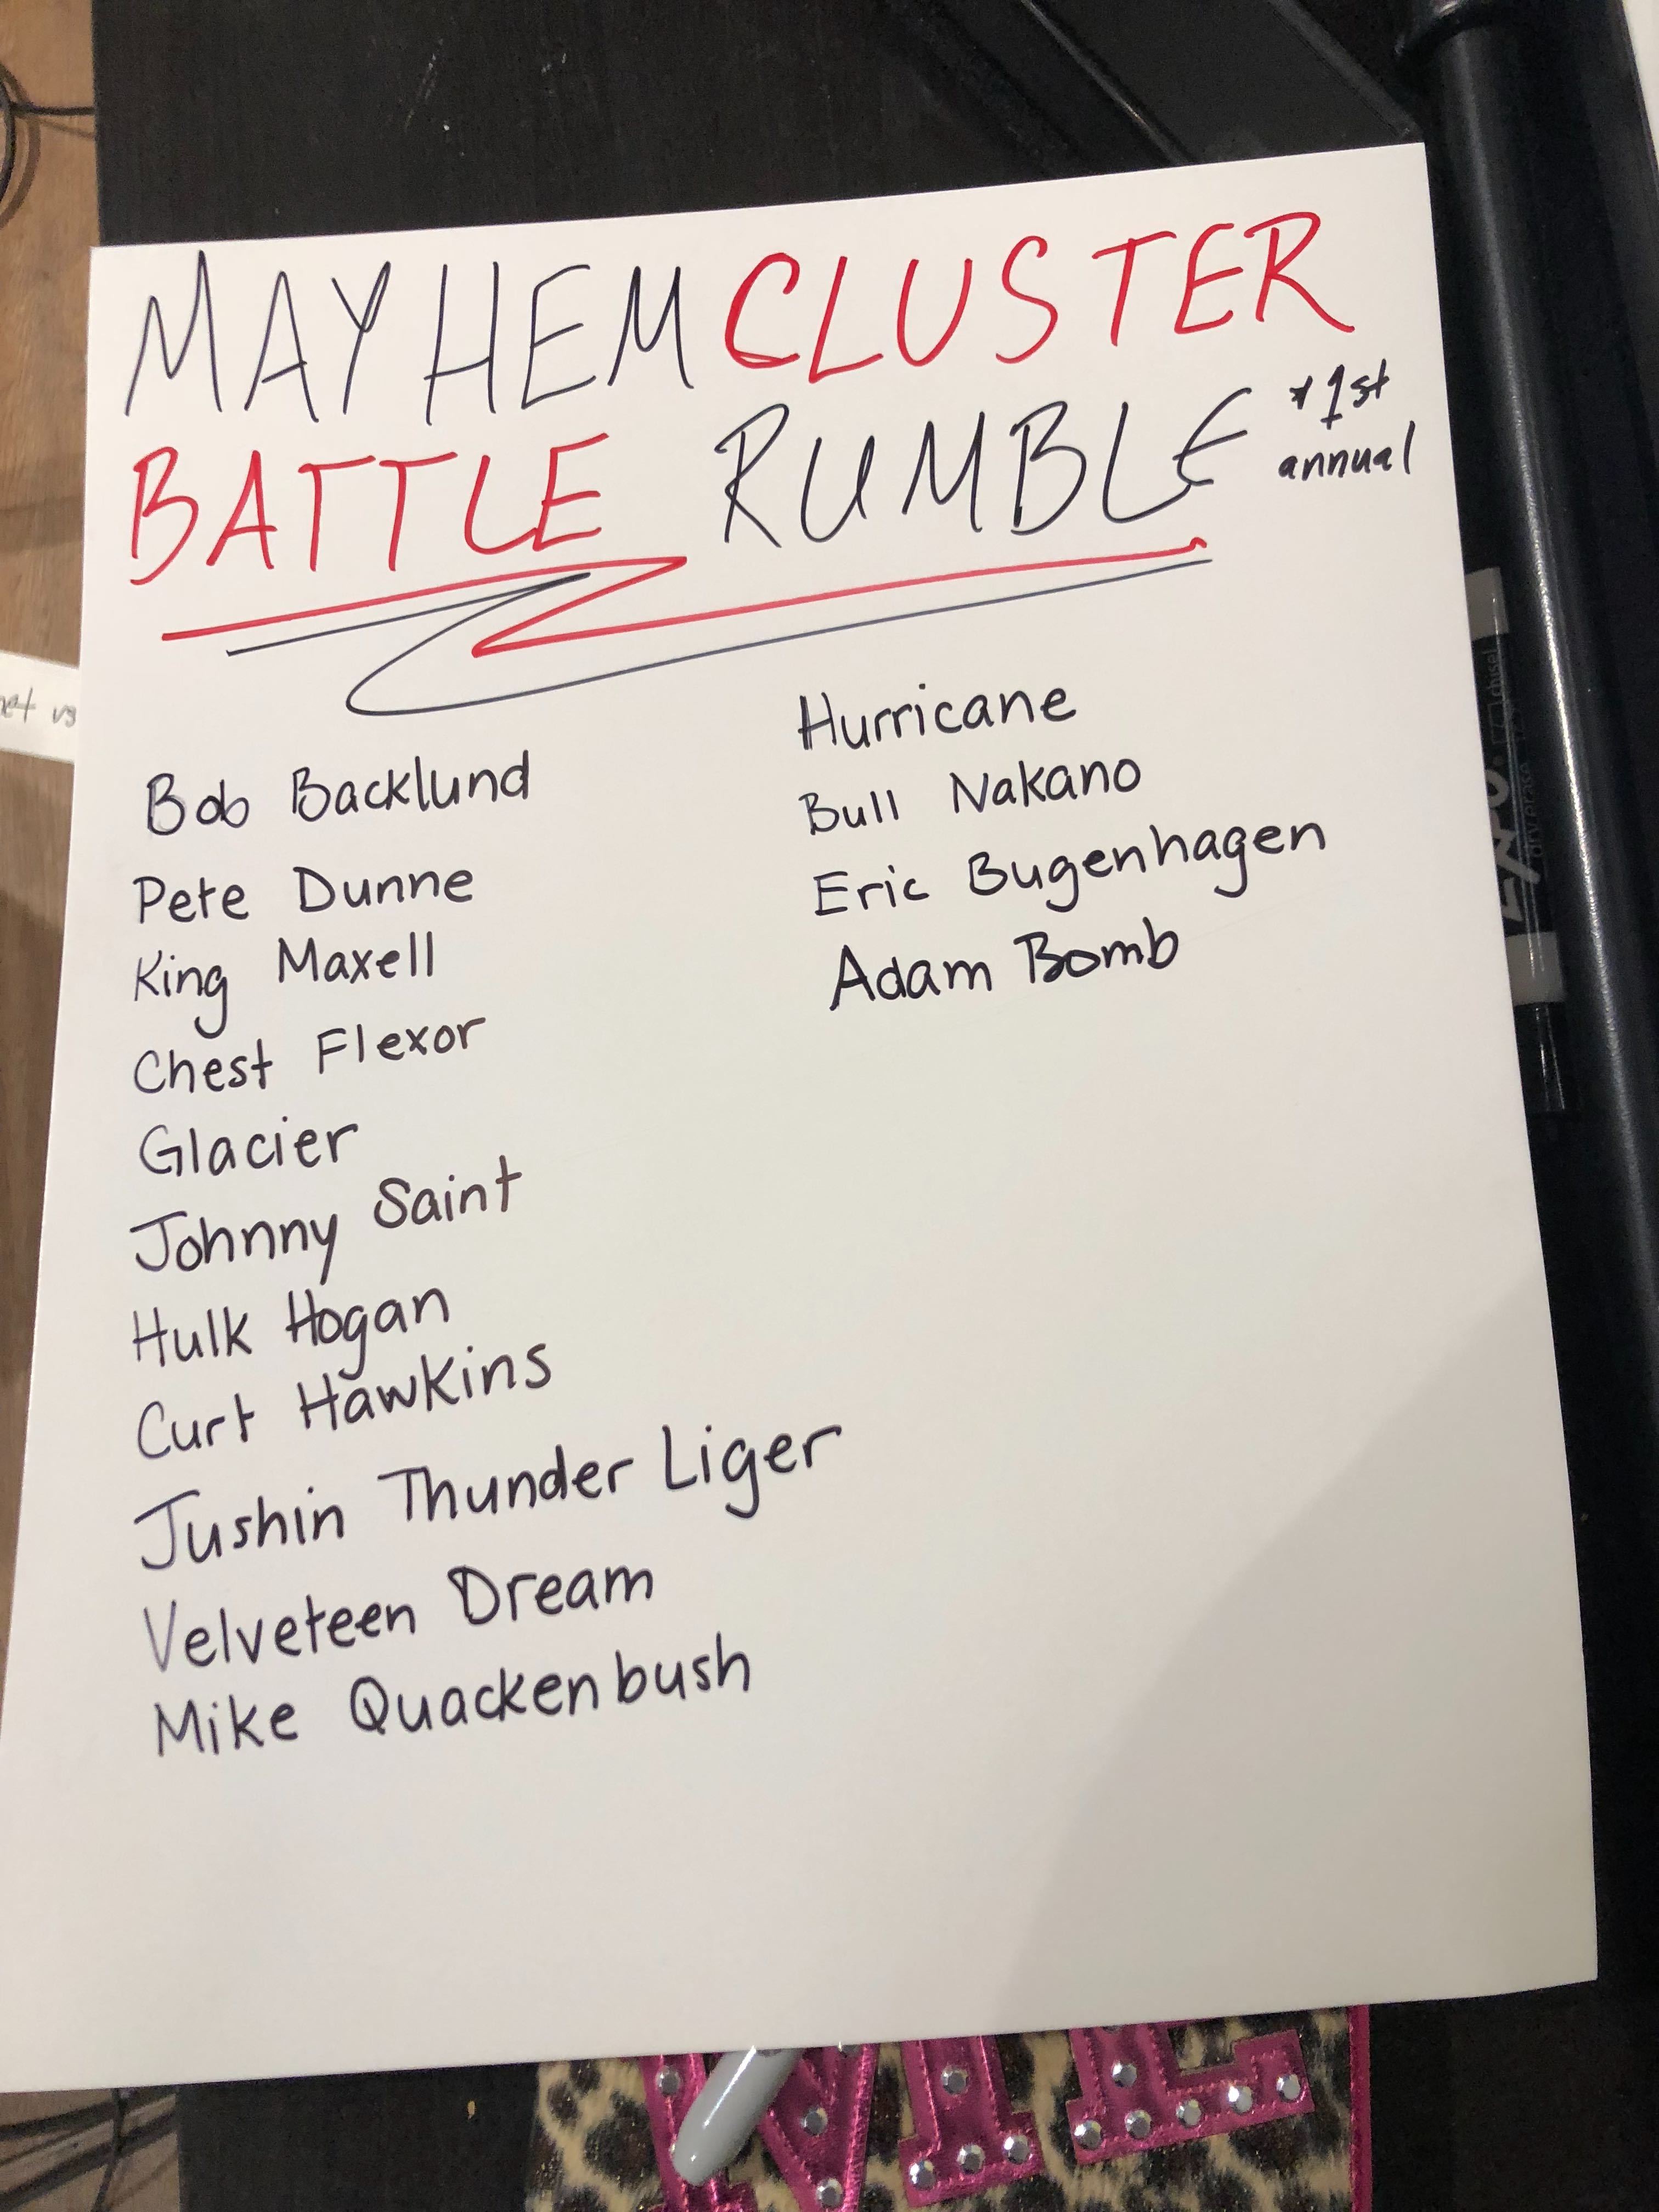 MAYHEM CLUSTER
BATTLE RUMBLE
*1st
annual
Bob Backlund
Pete Dunne
King Maxell
Chest Flexor
Glacier
Johnny Saint
Hulk Hogan
Curt Hawkins
Jushin Thunder Liger
Velveteen Dream
Mike Quackenbush
Hurricane
Bull Nakano
Eric Bugenhagen
Adam Bomb
vs
EXPO
dry erase
chisel